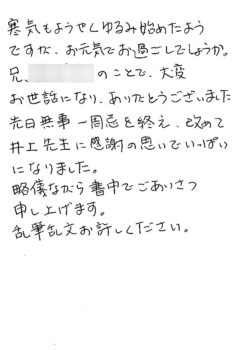 寒気もようやくゆるみ始めたよう
ですが、お元気でお過ごしでしょうか。
兄、のことで、大変
お世話になり、ありがとうございました
先日無事一周忌を終え、改めて
井上先生に感謝の思いでいっぱい
になりました。
略儀ながら書中でごあいさつ
申し上げます。
乱筆乱文お許しください。